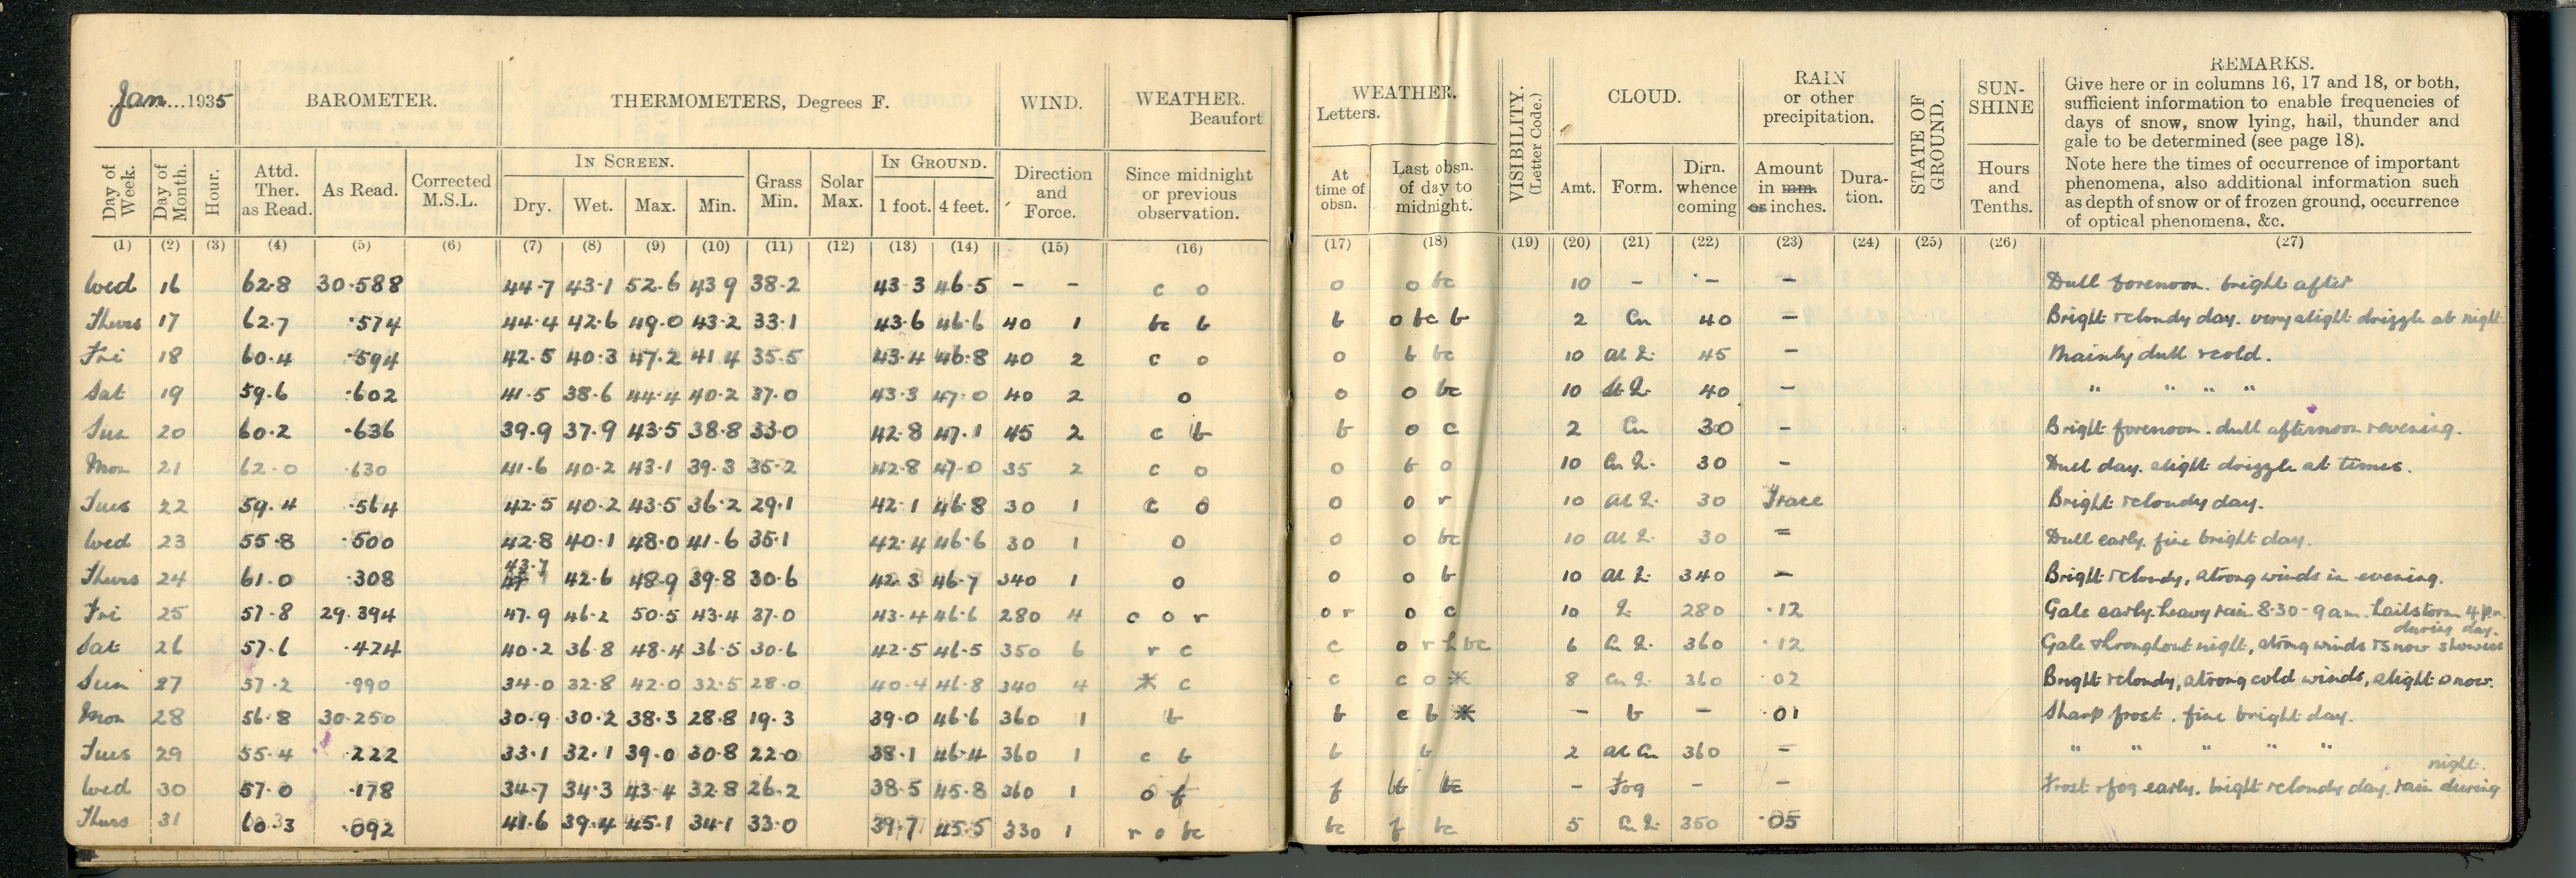 Jan. 1935 BAROMETER. THERMOMETERS, Degrees F. WIND. WEATHER. Beaufort
Day of Week. Day of Month. Hour. Attd. Ther. as Read. As Read. Corrected M.S.L. IN SCREEN. Dry. Wet. Max. Min. Grass Min. Solar Max. IN GROUND. 1 foot. 4 feet. Direction and Force. Since midnight or previous observation.
(1) (2) (3) (4) (5) (6) (7) (8) (9) (10) (11) (12) (13) (14) (15) (16)
WEATHER. Letters. VISIBILITY. (Letter Code.) CLOUD. RAIN or other precipitation. STATE OF GROUND. SUN-SHINE REMARKS.
Give here or in columns 16, 17 and 18, or both,
sufficient information to enable frequencies of
days of snow, snow lying, hail, thunder and
gale to be determined (see page 18).
Note here the times of occurrence of important
phenomena, also additional information such
as depth of snow or of frozen ground, occurrence
of optical phenomena, &c.
At time of obsn. Last obsn. of day to midnight. Amt. Form. Dirn. whence coming Amount in mm. or inches. Dura-tion. Hours and Tenths.
(17) (18) (19) (20) (21) (22) (23) (24) (25) (26) (27)
Wed 16 62.8 30.588 44.7 43.1 52.6 43.9 38.2 43.3 46.5 - - c o o o bc 10 - - - Dull forenoon. bright after
Thurs 17 62.7 .574 44.4 42.6 49.0 43.2 33.1 43.6 46.6 40 1 bc b b o bc b 2 Cu 40 - Bright & cloudy day. very slight drizzle at night.
Fri 18 60.4 .594 42.5 40.3 47.2 41.4 35.5 43.4 46.8 40 2 c o o b bc 10 45 - Mainly dull & cold.
Sat 19 59.6 .602 41.5 38.6 44.4 40.2 37.0 43.3 47.0 40 2 o o o bc 10 40 - " " " "
Sun 20 60.2 .636 39.9 37.9 43.5 38.8 33.0 42.8 47.1 45 2 c b b o c 2 Cu 30 - Bright forenoon. dull afternoon & evening.
Mon 21 62.0 .630 41.6 40.2 43.1 39.3 35.2 42.8 47.0 35 2 c o o b o 10 Cu 30 - Dull day. slight drizzle at times.
Tues 22 59.4 .564 42.5 40.2 43.5 36.2 29.1 42.1 46.8 30 1 c o o o r 10 30 Trace Bright & cloudy day.
Wed 23 55.8 .500 42.8 40.1 48.0 41.6 35.1 42.4 46.6 30 1 o o o bc 10 30 - Dull early. fine bright day.
Thurs 24 61.0 .308 43.7 42.6 48.9 39.8 30.6 42.3 46.7 340 1 o o o b 10 340 - Bright & cloudy, strong winds in evening.
Fri 25 57.8 29.394 47.9 46.2 50.5 43.4 37.0 43.4 46.6 280 4 c o r o r o c 10 280 .12 Gale early. heavy rain 8.30-9am. hailstorm 4 p.m.
Sat 26 57.6 .424 40.2 36.8 48.4 36.5 30.6 42.5 46.5 350 6 r c c o r h bc 6 Cu 360 .12 Gale throughout night, strong winds & snow showers during day.
Sun 27 57.2 .990 34.0 32.8 42.0 32.5 28.0 40.4 46.8 340 4 * c c c o * 8 Cu 360 .02 Bright & cloudy, strong cold winds, slight snow.
Mon 28 56.8 30.250 30.9 30.2 38.3 28.8 19.3 39.0 46.6 360 1 b b c b * - b - .01 Sharp frost. fine bright day.
Tues 29 55.4 .222 33.1 32.1 39.0 30.8 22.0 38.1 46.4 360 1 c b b b 2 Cu 360 - " " " " "
Wed 30 57.0 .178 34.7 34.3 43.4 32.8 26.2 38.5 45.8 360 1 o f f bc - Fog - - Frost & fog early. bright & cloudy day. rain during night.
Thurs 31 60.3 .092 41.6 39.4 45.1 34.1 33.0 39.7 45.5 330 1 r o bc bc f bc 5 Cu 350 .05